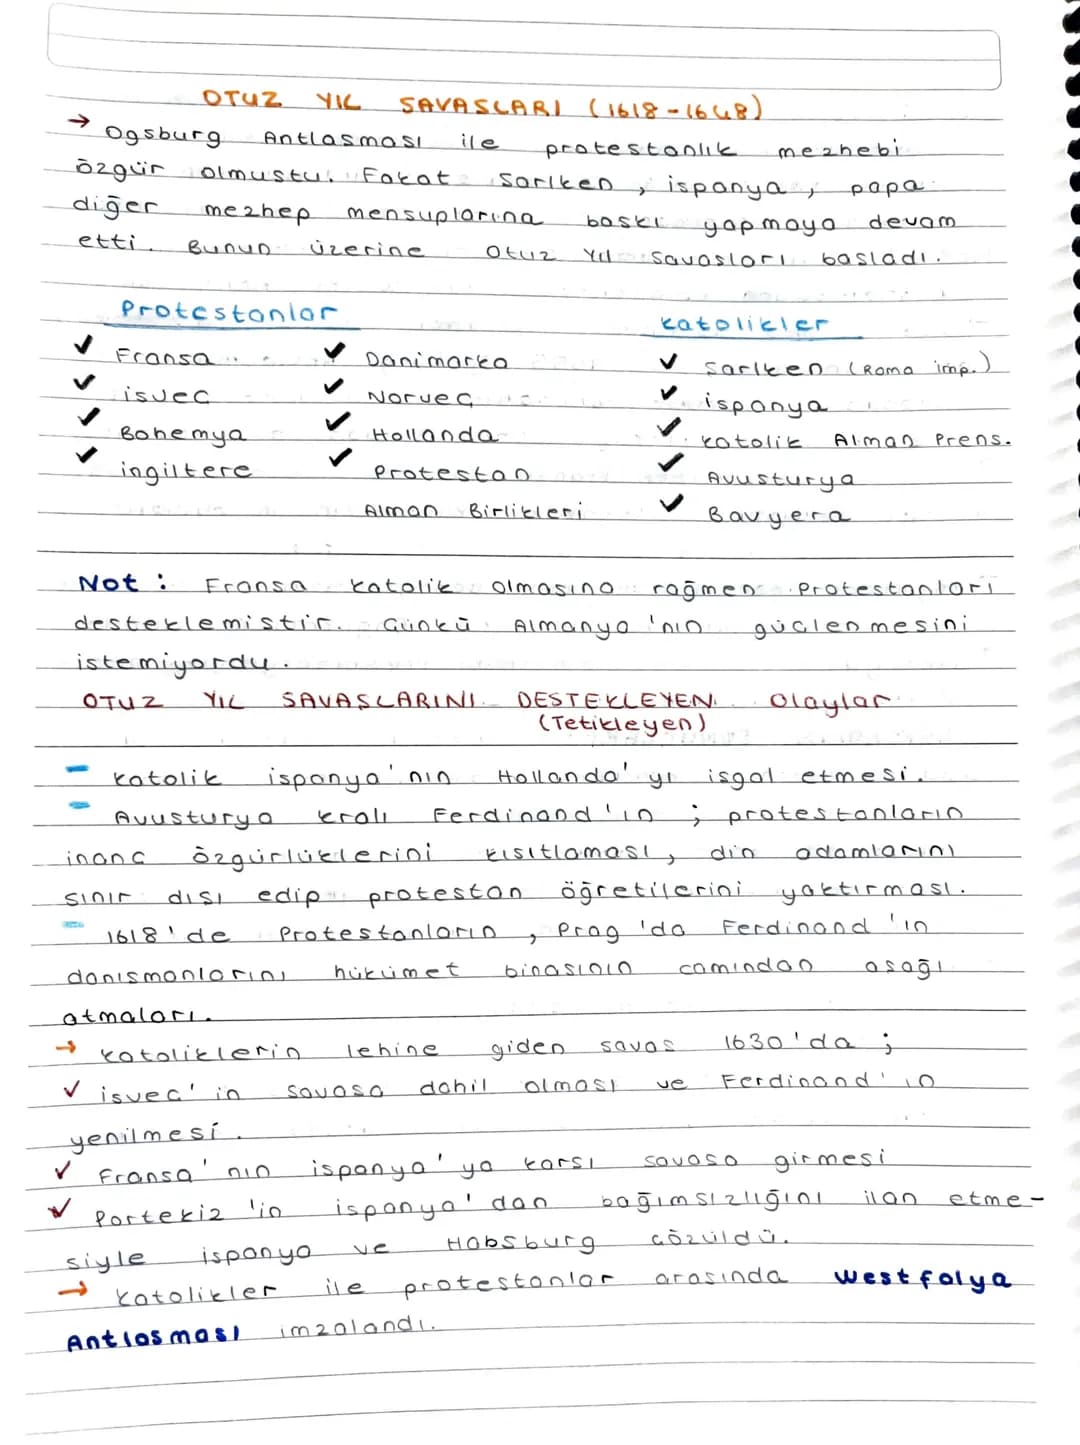 OTUZ YIL SAVASLARI (1618-1648)
→ Ogsburg Antlasması ile protestanlık mezhebi
özgür olmustu. Fakat Sarlken, ispanya, papa
diğer mezhep mensuplarına baskı yapmaya devam
etti. Bunun üzerine Otuz Yıl Savasları basladı.
Protestanlar Katolikler
✓ Fransa ✓ Danimarka ✓ Sarlken (Roma imp.)
✓ isvec ✓ Norvec ✓ ispanya
✓ Bohemya ✓ Hollanda ✓ Katolik Alman Prens.
✓ ingiltere ✓ Protestan ✓ Avusturya
Alman Birlikleri ✓ Bavyera
Not : Fransa Katolik olmasına rağmen Protestanları
desteklemistir. Cünkü Almanya'nın güclenmesini
istemiyordu.
OTUZ YIL SAVASLARINI DESTEKLEYEN Olaylar
(Tetikleyen)
- Katolik ispanya'nın Hollanda'yı isgal etmesi.
- Avusturya kralı Ferdinand'ın ; protestanların
inanc özgürlüklerini kısıtlaması, din adamlarını
sınır dısı edip protestan öğretilerini yaktırması.
- 1618'de Protestanların, Prag'da Ferdinand'ın
danısmanlarını hükümet binasının camından asağı
atmaları.
→ Katoliklerin lehine giden savas 1630'da ;
✓ isvec'in savasa dahil olması ve Ferdinand'ın
yenilmesi.
✓ Fransa'nın ispanya'ya karsı savasa girmesi
✓ Portekiz'in ispanya'dan bağımsızlığını ilan etme-
siyle ispanya ve Habsburg cözüldü.
→ Katolikler ile protestanlar arasında Westfalya
Antlasması imzalandı.